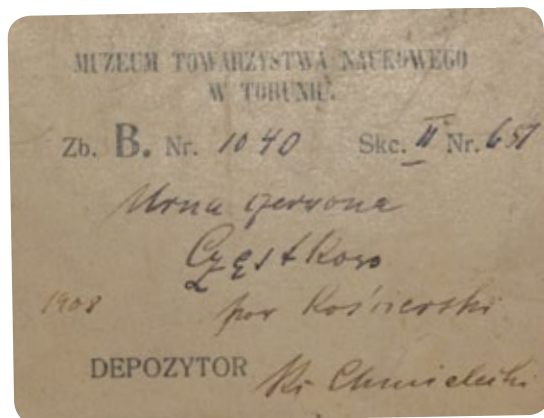 MUZEUM TOWARZYSTWA NAUKOWEGO
W TORUNIU.
Zb. B. Nr. 1040 Skc. II Nr. 651
Urna czerwona
Częstkowo
1908 pow Kościerski
DEPOZYTOR Ks Chmielecki